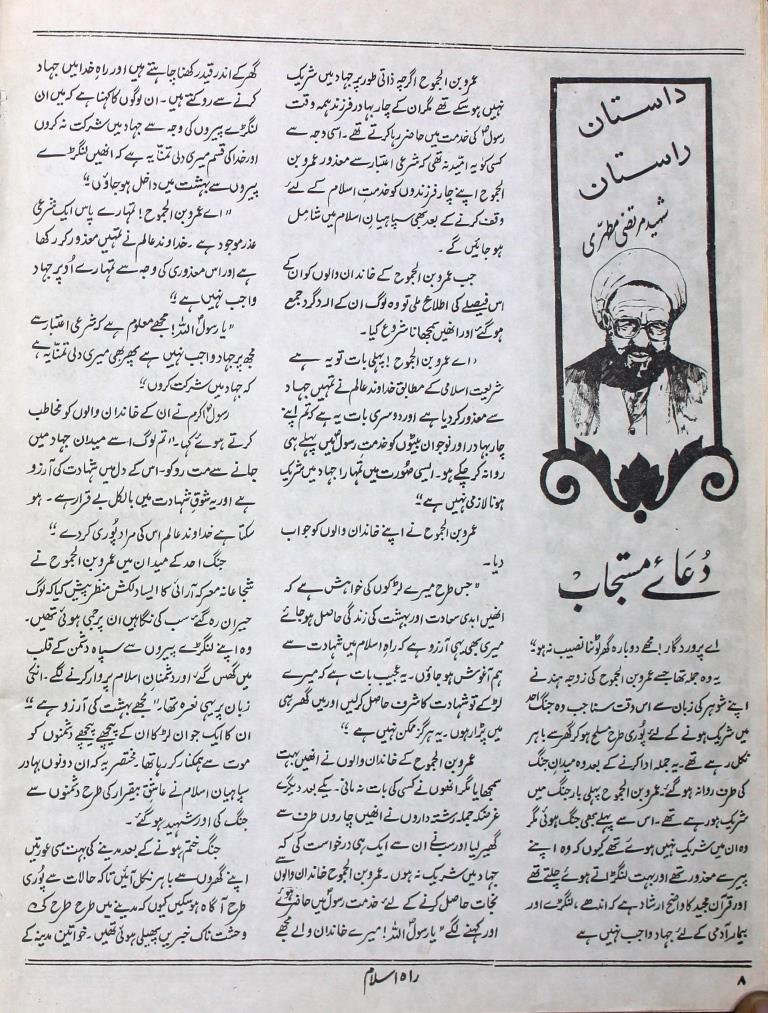 داستان
راستان
شہید مرتضیٰ مطہری
دُعائے مستجاب
اے پروردگار! مجھے دوبارہ گھر لوٹنا نصیب نہ ہو"
یہ وہ جملہ تھا جسے عمرو بن الجموح کی زوجہ ہند نے
اپنے شوہر کی زبان سے اس وقت سنا جب وہ جنگ احد
میں شریک ہونے کے لئے پوری طرح مسلح ہو کر گھر سے باہر
نکل رہے تھے۔ یہ جملہ ادا کرنے کے بعد وہ میدان جنگ
کی طرف روانہ ہو گئے۔ عمرو بن الجموح پہلی بار جنگ میں
شریک ہو رہے تھے۔ اس سے پہلے بھی جنگ ہوئی مگر
وہ ان میں شریک نہیں ہوئے تھے کیوں کہ وہ اپنے
پیر سے معذور تھے اور بہت لنگڑاتے ہوئے چلتے تھے
اور قرآن مجید کا واضح ارشاد ہے کہ اندھے، لنگڑے اور
بیمار آدمی کے لئے جہاد واجب نہیں ہے
عمرو بن الجموح اگرچہ ذاتی طور پر جہاد میں شریک
نہیں ہو سکے تھے مگر ان کے چار بہادر فرزند ہمہ وقت
رسولؐ کی خدمت میں حاضر رہا کرتے تھے۔ اسی وجہ سے
کسی کو یہ امید نہ تھی کہ شرعی اعتبار سے معذور عمرو بن
الجموح اپنے چار فرزندوں کو خدمت اسلام کے لئے
وقف کرنے کے بعد بھی سپاہیان اسلام میں شامل
ہو جائیں گے۔
جب عمرو بن الجموح کے خاندان والوں کو ان کے
اس فیصلے کی اطلاع ملی تو وہ لوگ ان کے ارد گرد جمع
ہو گئے اور انھیں سمجھانا شروع کیا۔
"اے عمرو بن الجموح! پہلی بات تو یہ ہے
شریعت اسلامی کے مطابق خداوند عالم نے تمہیں جہاد
سے معذور کر دیا ہے اور دوسری بات یہ ہے کہ تم اپنے
چار بہادر اور نوجوان بیٹوں کو خدمت رسولؐ میں پہلے ہی
روانہ کر چکے ہو۔ ایسی صورت میں تمہارا جہاد میں شریک
ہونا لازمی نہیں ہے"
عمرو بن الجموح نے اپنے خاندان والوں کو جواب
دیا۔
"جس طرح میرے لڑکوں کی خواہش ہے کہ
انھیں ابدی سعادت اور بہشت کی زندگی حاصل ہو جائے
میری بھی یہی آرزو ہے کہ راہ اسلام میں شہادت سے
ہم آغوش ہو جاؤں۔ یہ عجیب بات ہے کہ میرے
لڑکے تو شہادت کا شرف حاصل کر لیں اور میں گھر ہی
میں پڑا رہوں۔ یہ ہرگز ممکن نہیں ہے"
عمرو بن الجموح کے خاندان والوں نے انھیں بہت
سمجھایا مگر انھوں نے کسی کی بات نہ مانی۔ یکے بعد دیگرے
غرضکہ جملہ رشتہ داروں نے انھیں چاروں طرف سے
گھیر لیا اور سب نے ان سے ایک ہی درخواست کی کہ
جہاد میں شریک نہ ہوں۔ عمرو بن الجموح خاندان والوں سے
نجات حاصل کرنے کے لئے خدمت رسولؐ میں حاضر ہوئے
اور کہنے لگے "یا رسولؐ اللہ! میرے خاندان والے مجھے
گھر کے اندر قید رکھنا چاہتے ہیں اور راہ خدا میں جہاد
کرنے سے روکتے ہیں۔ ان لوگوں کا کہنا ہے کہ میں ان
لنگڑے پیروں کی وجہ سے جہاد میں شرکت نہ کروں
اور خدا کی قسم میری دلی تمنا یہ ہے کہ انھیں لنگڑے
پیروں سے بہشت میں داخل ہو جاؤں"
"اے عمرو بن الجموح! تمہارے پاس ایک شرعی
عذر موجود ہے۔ خداوند عالم نے تمہیں معذور کر رکھا
ہے اور اس معذوری کی وجہ سے تمہارے اوپر جہاد
واجب نہیں ہے"
"یا رسولؐ اللہ! مجھے معلوم ہے کہ شرعی اعتبار سے
مجھ پر جہاد واجب نہیں ہے پھر بھی میری دلی تمنا یہ ہے
کہ جہاد میں شرکت کروں"
رسولؐ اکرم نے ان کے خاندان والوں کو مخاطب
کرتے ہوئے کہا۔ "تم لوگ اسے میدان جہاد میں
جانے سے مت روکو۔ اس کے دل میں شہادت کی آرزو
ہے اور یہ شوق شہادت میں بالکل بے قرار ہے۔ ہو
سکتا ہے خداوند عالم اس کی مراد پوری کر دے"
جنگ احد کے میدان میں عمرو بن الجموح نے
شجاعانہ معرکہ آرائی کا ایسا دلکش منظر پیش کیا کہ لوگ
حیران رہ گئے۔ سب کی نگاہیں ان پر جمی ہوئی تھیں۔
وہ اپنے لنگڑے پیروں سے سپاہ دشمن کے قلب
میں گھس گئے اور دشمنان اسلام پر وار کرنے لگے۔ انکی
زبان پر یہی نعرہ تھا۔ "مجھے بہشت کی آرزو ہے"
ان کا ایک جوان لڑکا ان کے پیچھے پیچھے دشمنوں کو
موت سے ہمکنار کر رہا تھا۔ مختصر یہ کہ ان دونوں بہادر
سپاہیان اسلام نے عاشق بیقرار کی طرح دشمنوں سے
جنگ کی اور شہید ہو گئے۔
جنگ ختم ہونے کے بعد مدینے کی بہت سی عورتیں
اپنے گھروں سے باہر نکل آئیں تاکہ حالات سے پوری
طرح آگاہ ہو سکیں کیوں کہ مدینے میں طرح طرح کی
وحشت ناک خبریں پھیلی ہوئی تھیں۔ خواتین مدینہ کے
راہ اسلام
۸